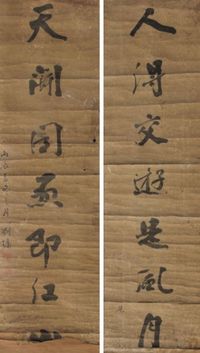 人得交遊是風月
天開圖畫即江山